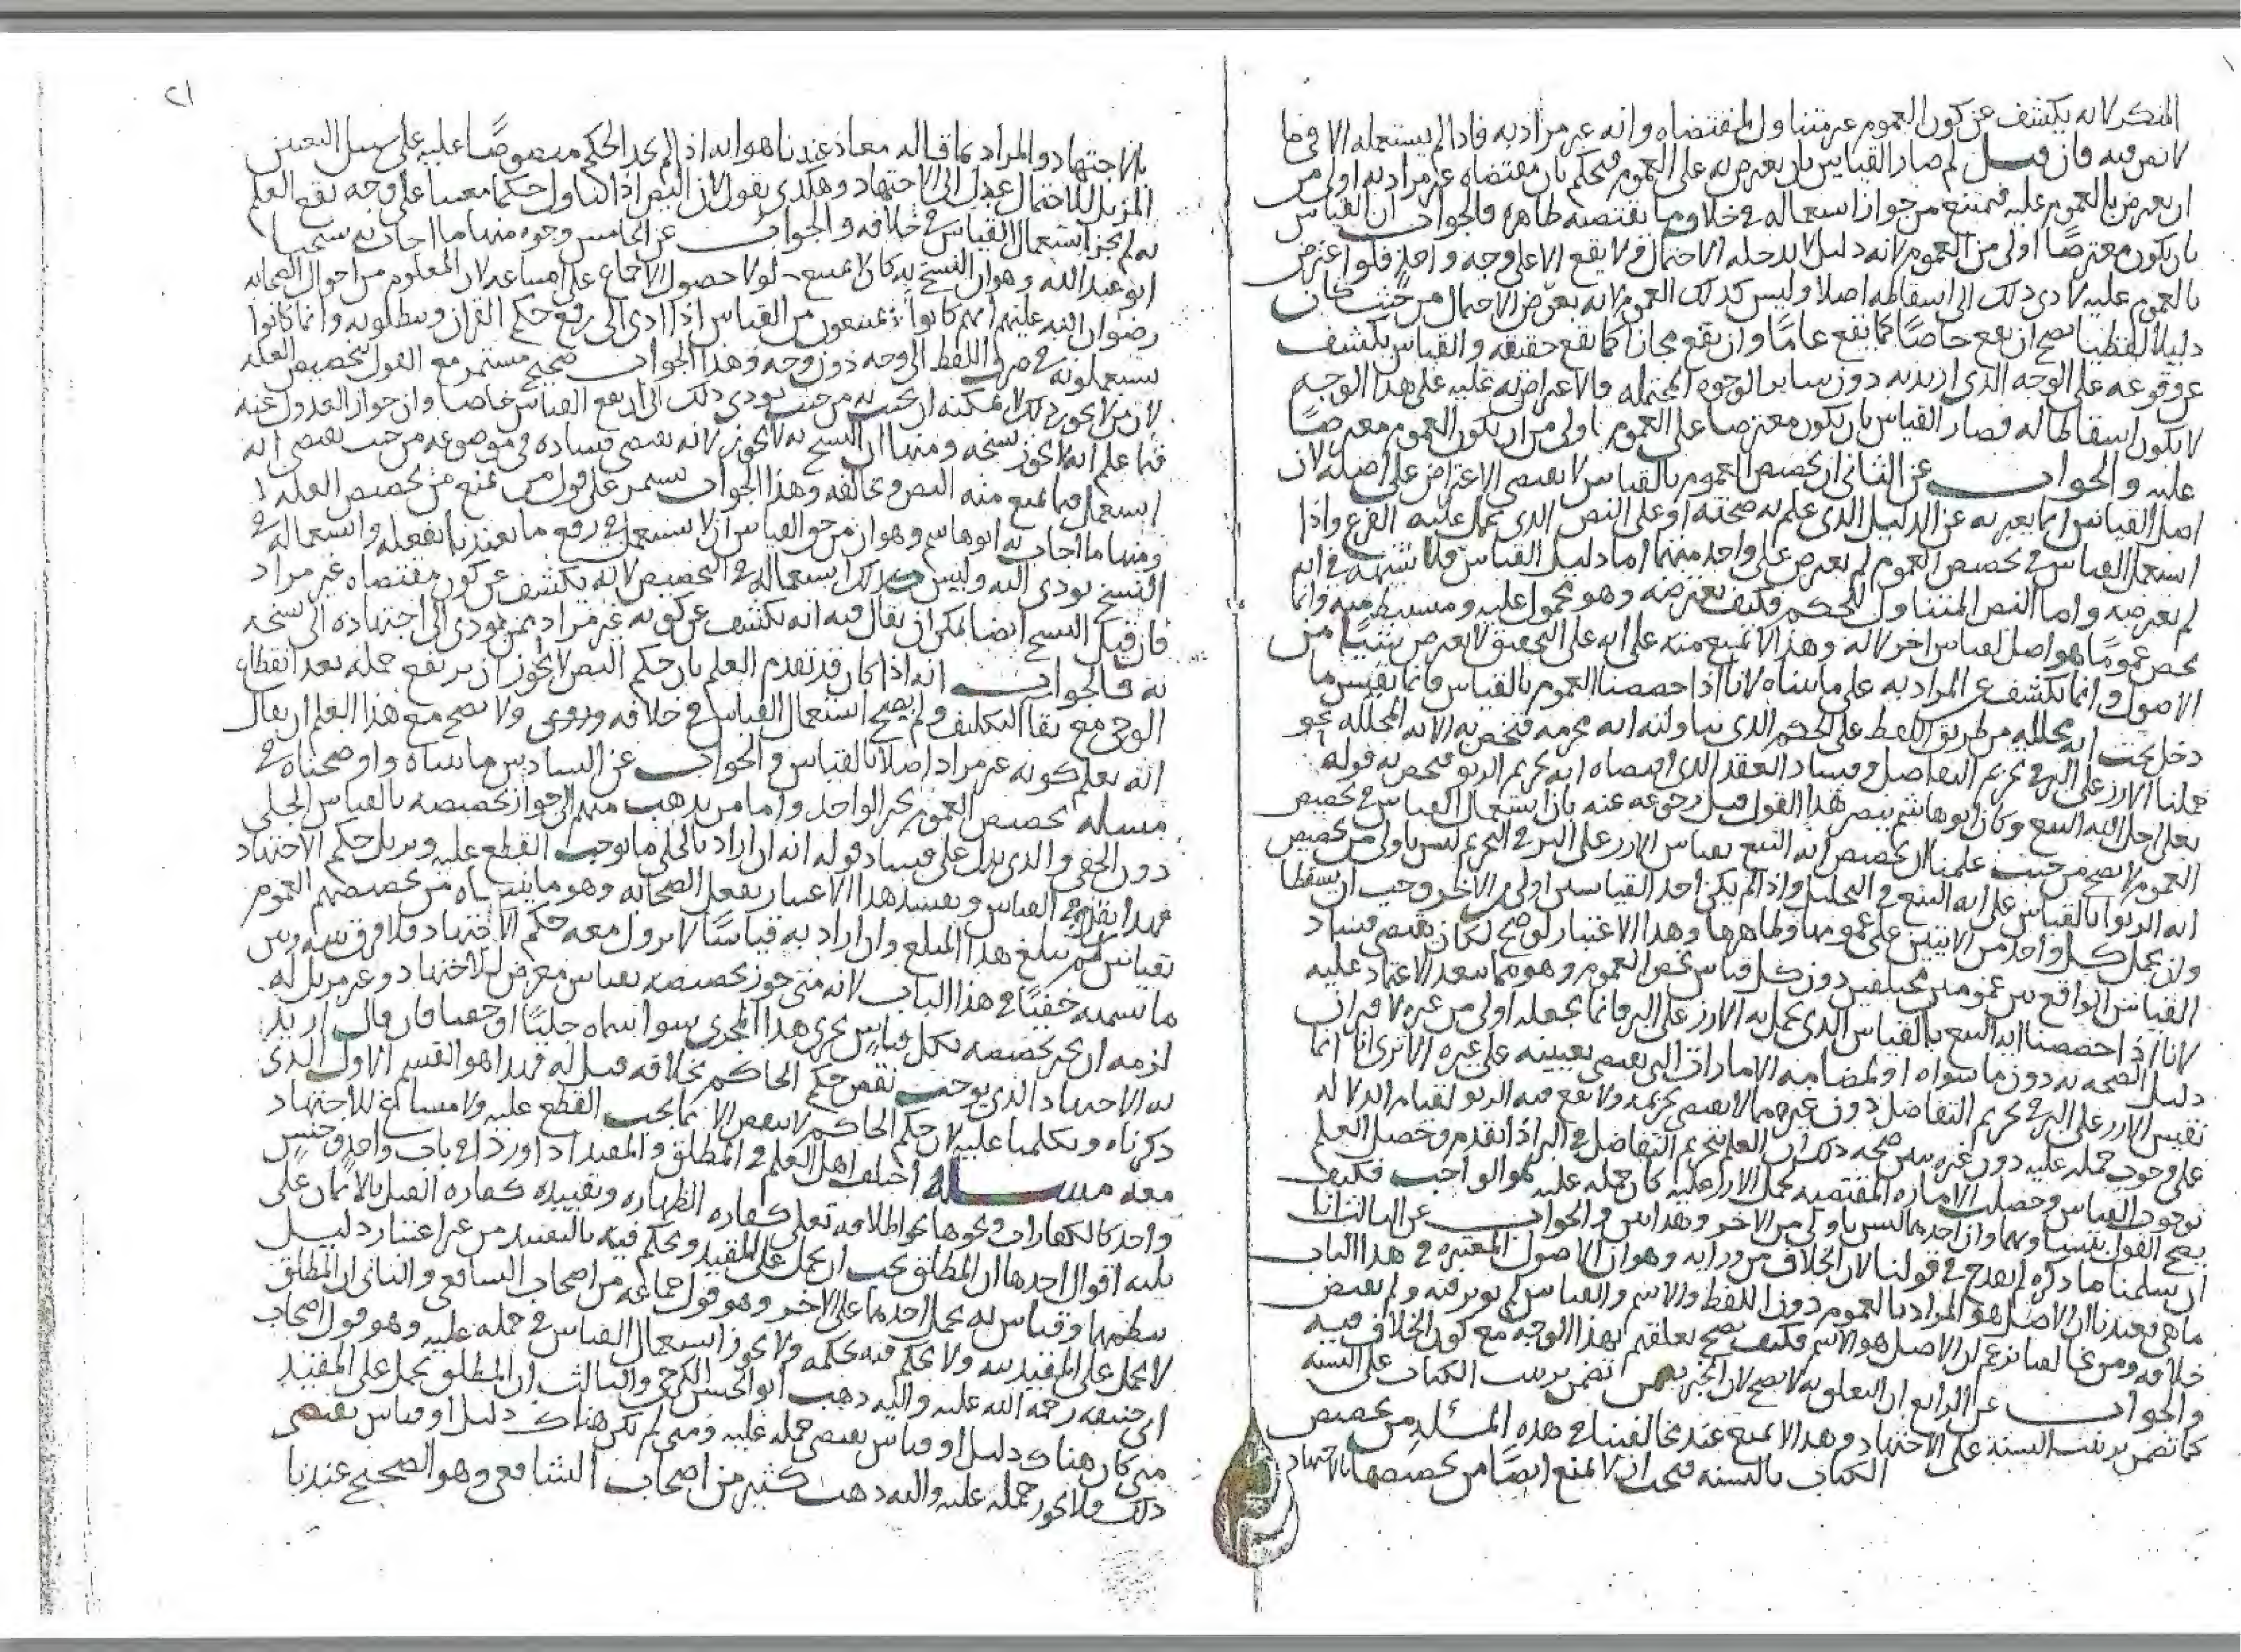 المنكر لانه يكشف عن كون العموم غير متناول لمقتضاه وانه غير مراد به فاذا لم يستعمله الا فيما
لا نص فيه فان قيل لم صار القياس بان يعترض به على العموم فيحكم بان مقتضاه غير مراد به اولى من
ان يعترض بالعموم عليه فيمتنع من جواز استعماله في خلاف ما يقتضيه ظاهره فالجواب ان القياس
بان يكون معترضا اولى من العموم لانه دليل لا يدخله الاحتمال ولا يقع الا على وجه واحد فلو اعترض
بالعموم عليه لادى ذلك الى اسقاطه اصلا وليس كذلك العموم لانه يعرض الاحتمال من حيث كان
دليلا لفظيا يصح ان يقع خاصا كما يقع عاما وان يقع مجازا كما يقع حقيقه والقياس يكشف
عن وقوعه على الوجه الذى اريد به دون ساير الوجوه المحتمله فالاعتراض به عليه على هذا الوجه
لا يكون اسقاطا له فصار القياس بان يكون معترضا على العموم اولى من ان يكون العموم معترضا
عليه والجواب عن الثانى ان تخصيص العموم بالقياس لا يقتضى الاعتراض على اصله لان
اصل القياس انما يعبر به عن الدليل الذى علم به صحته او على النص الذى يحمل عليه الفرع واذا
استعمل القياس في تخصيص العموم لم يعترض على واحد منهما اما دليل القياس فلا شبهه في انه
لم يعترضه واما النص المتناول للحكم فكيف يعترضه وهو محمول عليه ومستنبط منه وانما
يخص عموما هو اصل لقياس اخر لا له وهذا لا يمتنع منه على انه على التحقيق لا يعترض بشيء من
الاصول وانما يكشف عن المراد به على ما بيناه لانا اذا خصصنا العموم بالقياس فانما نقيس ما
دخل تحت ايه محلله من طريق اللفظ على الحكم الذى تناولته ايه محرمه فنخص به الايه المحلله نحو
حملنا الارز على البر في تحريم التفاضل وفساد العقد الذى اقتضاه ايه تحريم الربو فنخص به قوله
تعلى احل الله البيع وكان ابو هاشم ينصر هذا القول قبل رجوعه عنه بان استعمال القياس في تخصيص
العموم لا يصح من حيث علمنا ان تخصيص ايه البيع بقياس الارز على البر في التحريم ليس باولى من تخصيص
ايه الربوا بالقياس على ايه البيع في التحليل واذا لم يكن احد القياسين اولى من الاخر وجب ان يسقطا
وان يحمل كل واحد من الايتين على عمومها وظاهرها وهذا الاعتبار لو صح لكان يقتضى فساد
القياس الواقع بين عمومين مختلفين دون كل قياس يخص العموم وهو مما يبعد الاعتماد عليه
لانا اذا خصصنا ايه البيع بالقياس الذى يحمل به الارز على البر فانما نجعله اولى من غيره لاقتران
دليل الصحه به دون ما سواه او لمضامه الامارات التى يقتضى تعيينه على غيره الا ترى انا انما
نقيس الارز على البر في تحريم التفاضل دون غيره مما لا يقتضى تحريمه ولا يقع فيه الربو لقيام الدلاله
على وجوب حمله عليه دون غيره يبين صحه ذلك ان العلم بتحريم التفاضل في البر اذا تقدم وحصل العلم
بوجوب القياس وحصلت الاماره المقتضيه لحمل الارز عليه كان حمله عليه هو الواجب فكيف
يصح القول بتساويهما وان احدهما ليس باولى من الاخر وهذا بين والجواب عن الثالث انا
ان سلمنا ما ذكره لم يقدح في قولنا لان الخلاف من ورايه وهو ان الاصول المعتبره في هذا الباب
ما هى فعندنا ان الاصل هو المراد بالعموم دون اللفظ والاسم والقياس لم يوثر فيه ولم يقتض
خلافه ومن خالفنا زعم ان الاصل هو الاسم فكيف يصح تعلقهم بهذا الوجه مع كون الخلاف فيه
والجواب عن الرابع ان التعلق به لا يصح لان الخبر تضمن ترتيب الكتاب على السنه
كما تضمن ترتيب السنة على الاجتهاد وهذا لا يمنع عند مخالفينا في هذه المسئله من تخصيص
الكتاب بالسنه فيجب ان لا يمنع ايضا من تخصيصها بالاجتهاد
٢١
بالاجتهاد والمراد بما قاله معاذ عندنا هو انه اذا لم يجد الحكم منصوصا عليه على سبيل التعيين
المزيل للاحتمال عدل الى الاجتهاد وهكذى نقول لان النص اذا تناول حكما معينا على وجه يقع العلم
به لم يجز استعمال القياس في خلافه والجواب عن الخامس وجوه منها ما اجاب به شيخنا
ابو عبدالله وهو ان النسخ به كان لا يمتنع لولا حصول الاجماع على امتناعه لان المعلوم من احوال الصحابه
رضوان الله عليهم انهم كانوا يمتنعون من القياس اذا ادى الى رفع حكم القران ويبطلونه وانما كانوا
يستعملونه في صرف اللفظ الى وجه دون وجه وهذا الجواب صحيح مستمر مع القول بتخصيص العله
لان من لا يجوز ذلك لا يمكنه ان يجيب به من حيث يودى ذلك الى ان يقع القياس خاصا وان جواز العدول عنه
فيما علم انه لا يجوز نسخه ومنها ان النسخ به لا يجوز لانه يقتضى فساده في موضوعه من حيث يقتضى انه
استعمل فيما يمنع منه النص ويخالفه وهذا الجواب يستمر على قول من يمنع من تخصيص العله
ومنها ما اجاب به ابو هاشم وهو ان من حق القياس ان لا يستعمل في رفع ما تعبدنا بفعله واستعماله في
النسخ يودى اليه وليس كذلك استعماله في التخصيص لانه يكشف عن كون مقتضاه غير مراد
فان قيل النسخ ايضا يمكن ان يقال فيه انه يكشف عن كونه غير مراد ممن يودى اجتهاده الى نسخه
به فالجواب انه اذا كان قد تقدم العلم بان حكم النص لا يجوز ان يرتفع جمله بعد انقطاع
الوحى مع بقا التكليف لم يصح استعمال القياس في خلافه ولا يصح مع هذا العلم ان يقال
انه يعلم كونه غير مراد اصلا بالقياس والجواب عن السادس ما بيناه واوضحناه في
مسله تخصيص العموم بخبر الواحد واما من يذهب منهم الى جواز تخصيصه بالقياس الجلى
دون الخفى والذى يدل على فساد قوله انه ان اراد بالجلى ما يوجب القطع عليه ويزيل حكم الاجتهاد
فهذا يقدح في القياس ويفسد هذا الاعتبار بفعل الصحابه وهو ما بيناه من تخصيصهم العموم
بقياس لم يبلغ هذا المبلغ وان اراد به قياسا لا يزول معه حكم الاجتهاد فلا فرق بينه وبين
ما نسميه خفيا في هذا الباب لانه متى جوز تخصيصه بقياس معرض للاجتهاد وغير مزيل له
لزمه ان يجيز تخصيصه بكل قياس يجرى هذا المجرى سوا سماه جليا او خفيا فان قال اريد
به الاجتهاد الذى يوجب نقض حكم الحاكم بخلافه قيل له فهذا هو القسم الاول الذى
ذكرناه وتكلمنا عليه لان حكم الحاكم لا ينقض الا بما يجب القطع عليه ولا مساغ للاجتهاد
معه مسله اختلف اهل العلم في المطلق والمقيد اذا وردا في باب واحد وجنس
واحد كالكفارات ونحوها نحو اطلاقه تعلى كفاره الظهاره وتقييده كفاره القتل بالايمان على
ثلثه اقوال احدها ان المطلق يجب ان يحمل على المقيد ويحكم فيه بالتقييد من غير اعتبار دليل
وقياس به يحمل احدهما على الاخر وهو قول جماعه من اصحاب الشافعى والثانى ان المطلق
لا يحمل على المقيد ولا يحكم فيه بحكمه ولا يجوز استعمال القياس في حمله عليه وهو قول اصحاب
ابى حنيفه رحمة الله عليه واليه ذهب ابو الحسن الكرخى والثالث ان المطلق يحمل على المقيد
متى كان هناك دليل او قياس يقتضى حمله عليه ومتى لم تكن هناك دليل او قياس يقتضى
ذلك فلا يجوز حمله عليه واليه ذهب كثير من اصحاب الشافعى وهو الصحيح عندنا